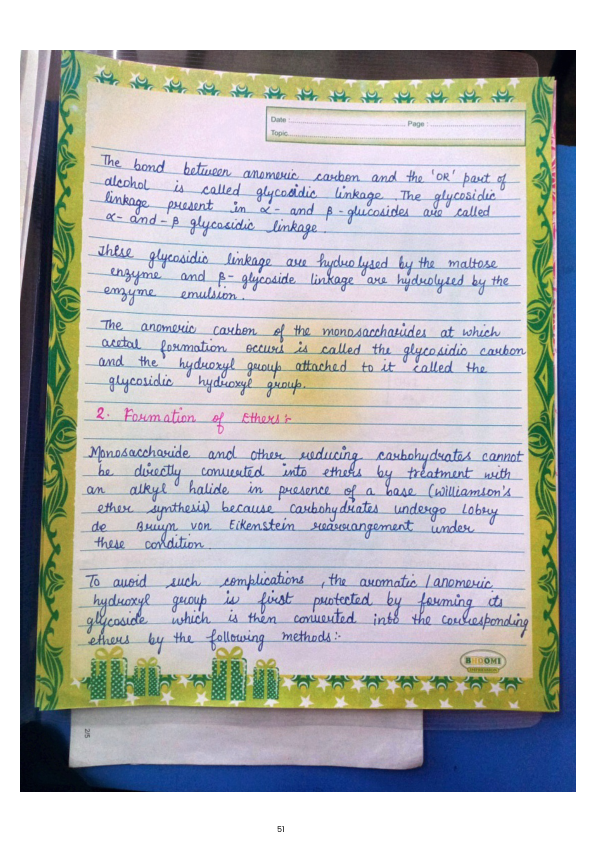 Date :
Page :
Topic
The bond between anomeric carbon and the 'OR' part of
alcohol is called glycosidic linkage. The glycosidic
linkage present in α- and β-glucosides are called
α- and - β glycosidic linkage.
These glycosidic linkage are hydrolysed by the maltose
enzyme and β- glycoside linkage are hydrolysed by the
enzyme emulsion.
The anomeric carbon of the monosaccharides at which
acetal formation occurs is called the glycosidic carbon
and the hydroxyl group attached to it called the
glycosidic hydroxyl group.
2. Formation of Ethers:-
Monosaccharide and other reducing carbohydrates cannot
be directly converted into ethers by treatment with
an alkyl halide in presence of a base (Williamson's
ether synthesis) because carbohydrates undergo Lobry
de Bruyn von Eikenstein rearrangement under
these condition.
To avoid such complications, the aromatic / anomeric
hydroxyl group is first protected by forming its
glycoside which is then converted into the corresponding
ethers by the following methods:-
BHOOMI
2/5
51